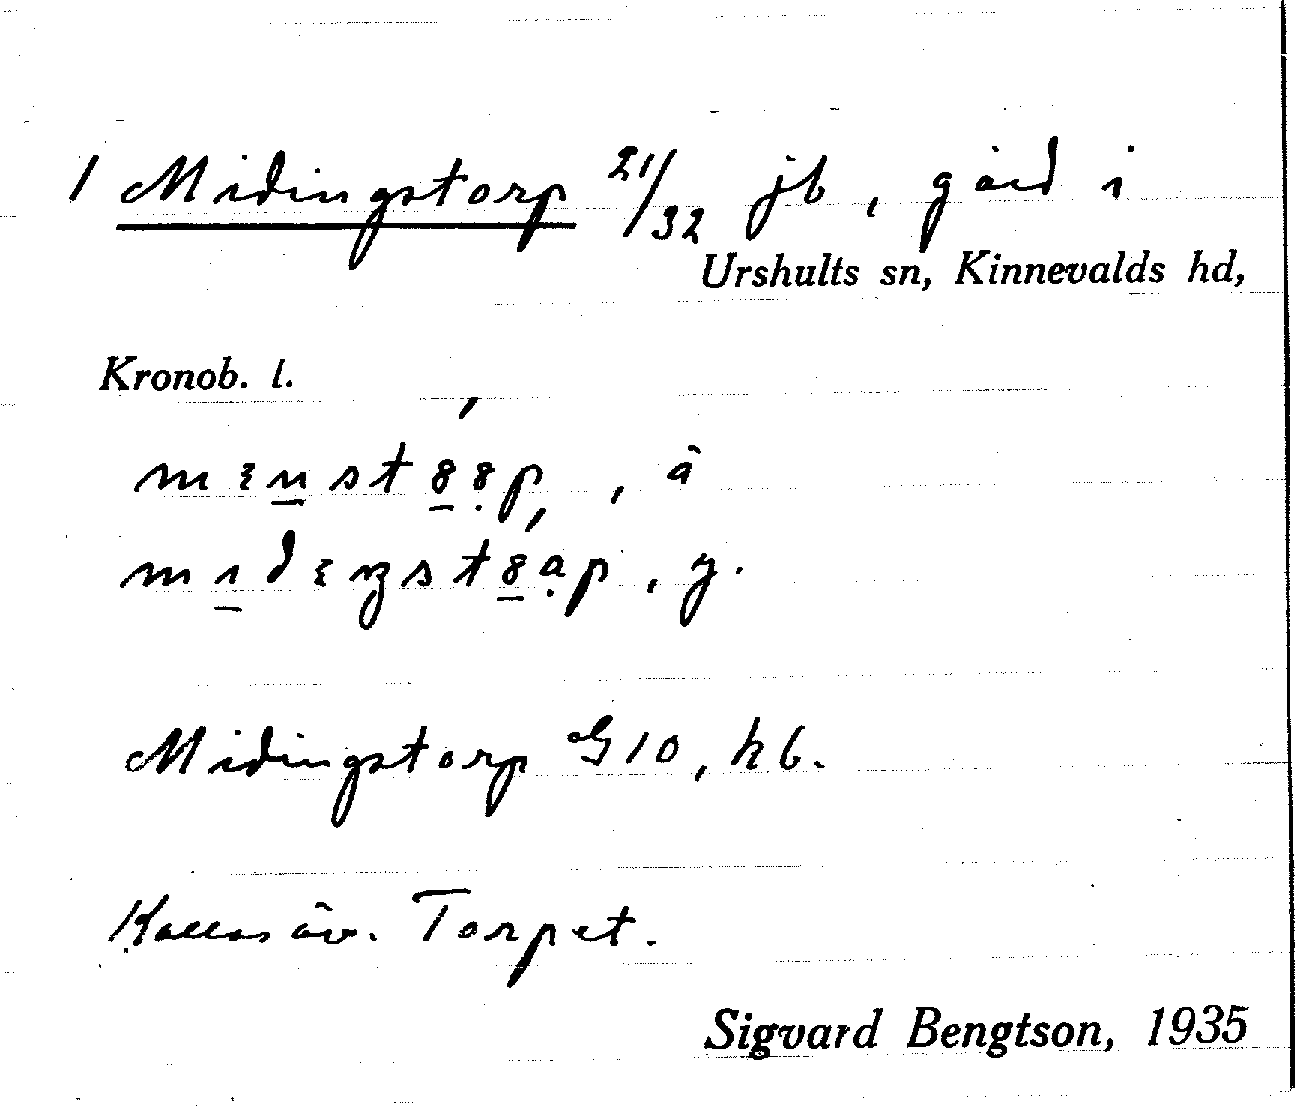 1 Midingstorp 21/32 jb, gård i
Urshults sn, Kinnevalds hd,
Kronob. l.
, ä
, y.
Midingstorp G10, kb.
Kallas äv. Torpet.
Sigvard Bengtson, 1935